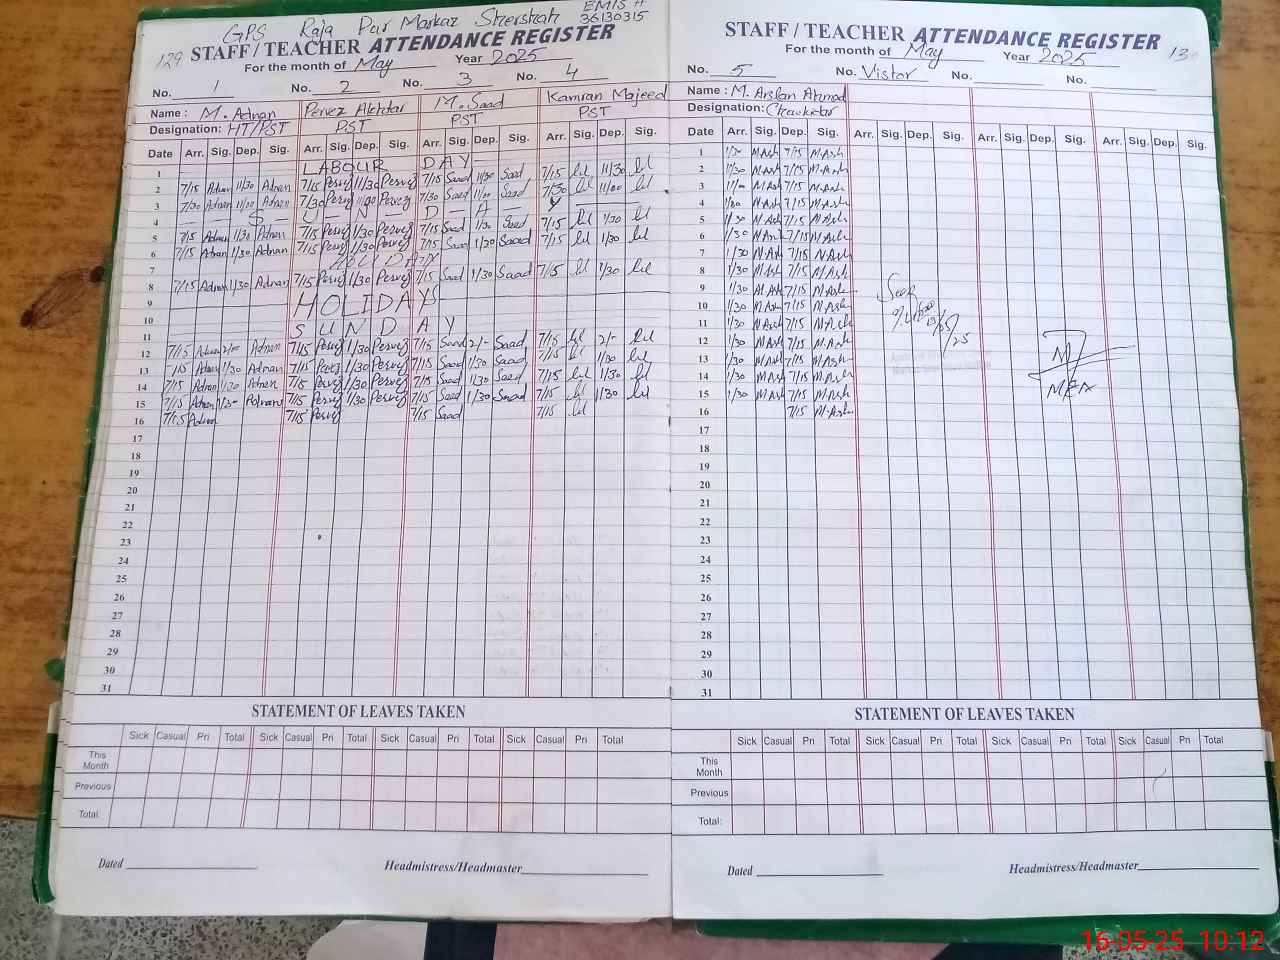 GPS Raja Pur Markaz Shershah EMIS # 36130315
129 STAFF / TEACHER ATTENDANCE REGISTER
For the month of May Year 2025
No. 1 No. 2 No. 3 No. 4
Name : M. Adnan Pervez Akhtar M. Saad Kamran Majeed
Designation: HT/PST PST PST PST
Date Arr. Sig. Dep. Sig. Arr. Sig. Dep. Sig. Arr. Sig. Dep. Sig. Arr. Sig. Dep. Sig.
1 LABOUR DAY
2 7/15 Adnan 11/30 Adnan 7/15 Perveg 11/30 Perveg 7/15 Saad 11/30 Saad 7/15 11/30
3 7/30 Adnan 11/00 Adnan 7/30 Perveg 11/00 Perveg 7/30 Saad 11/00 Saad 7/30 11/00
4 S U N D A Y
5 7/15 Adnan 1/30 Adnan 7/15 Perveg 1/30 Perveg 7/15 Saad 1/30 Saad 7/15 1/30
6 7/15 Adnan 1/30 Adnan 7/15 Perveg 1/30 Perveg 7/15 Saad 1/30 Saad 7/15 1/30
7 HOLIDAY
8 7/15 Adnan 1/30 Adnan 7/15 Perveg 1/30 Perveg 7/15 Saad 1/30 Saad 7/15 1/30
9 HOLIDAYS
10
11 SUNDAY
12 7/15 Adnan 2/- Adnan 7/15 Perveg 1/30 Perveg 7/15 Saad 2/- Saad 7/15 2/-
13 7/15 Adnan 1/30 Adnan 7/15 Perveg 1/30 Perveg 7/15 Saad 1/30 Saad 7/15 1/30
14 7/15 Adnan 1/30 Adnan 7/15 Perveg 1/30 Perveg 7/15 Saad 1/30 Saad 7/15 1/30
15 7/15 Adnan Adnan 7/15 Perveg 1/30 Perveg 7/15 Saad 1/30 Saad 7/15
16 7/15 Adnan 7/15 Perveg 7/15 Saad 7/15
17
18
19
20
21
22
23
24
25
26
27
28
29
30
31
STATEMENT OF LEAVES TAKEN
Sick Casual Pri Total Sick Casual Pri Total Sick Casual Pri Total Sick Casual Pri Total
This Month
Previous
Total:
Dated Headmistress/Headmaster
STAFF / TEACHER ATTENDANCE REGISTER
For the month of May Year 2025
No. 5 No. Vistor No. No.
Name : M. Arslan Ahmad
Designation: Chaukidar
Date Arr. Sig. Dep. Sig. Arr. Sig. Dep. Sig. Arr. Sig. Dep. Sig. Arr. Sig. Dep. Sig.
1 1/30 M.Ash 7/15 M.Ash
2 11/30 M.Ash 7/15 M.Ash
3 11/00 M.Ash 7/15 M.Ash
4 M.Ash 7/15 M.Ash
5 1/30 M.Ash 7/15 M.Ash
6 1/30 M.Ash 7/15 M.Ash
7 1/30 M.Ash 7/15 M.Ash
8 1/30 M.Ash 7/15 M.Ash
9 1/30 M.Ash 7/15 M.Ash
10 1/30 M.Ash 7/15 M.Ash
11 1/30 M.Ash 7/15 M.Ash
12 1/30 M.Ash 7/15 M.Ash
13 1/30 M.Ash 7/15 M.Ash
14 1/30 M.Ash 7/15 M.Ash
15 1/30 M.Ash 7/15 M.Ash
16 7/15 M.Ash
17
18
19
20
21
22
23
24
25
26
27
28
29
30
31
MEA
STATEMENT OF LEAVES TAKEN
Sick Casual Pri Total Sick Casual Pri Total Sick Casual Pri Total Sick Casual Pri Total
This Month
Previous
Total:
Dated Headmistress/Headmaster
16-05-25 10:12